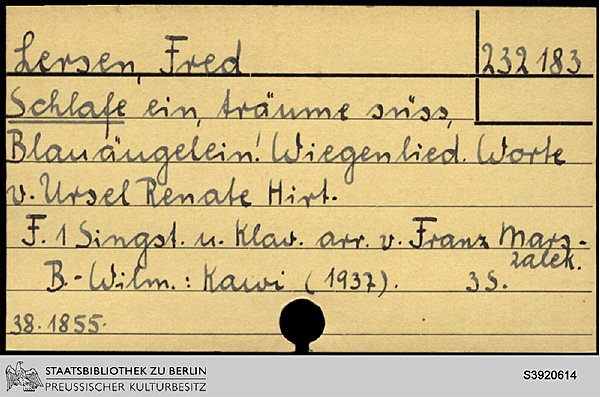 Lersen, Fred 232183
Schlafe ein, träume süss,
Blauäugelein! Wiegenlied. Worte
v. Ursel Renate Hirt.
F. 1 Singst. u. Klav. arr. v. Franz Mars-
zalek.
B.-Wilm.: Kawi (1937). 3 S.
38.1855.
STAATSBIBLIOTHEK ZU BERLIN
PREUSSISCHER KULTURBESITZ
S3920614